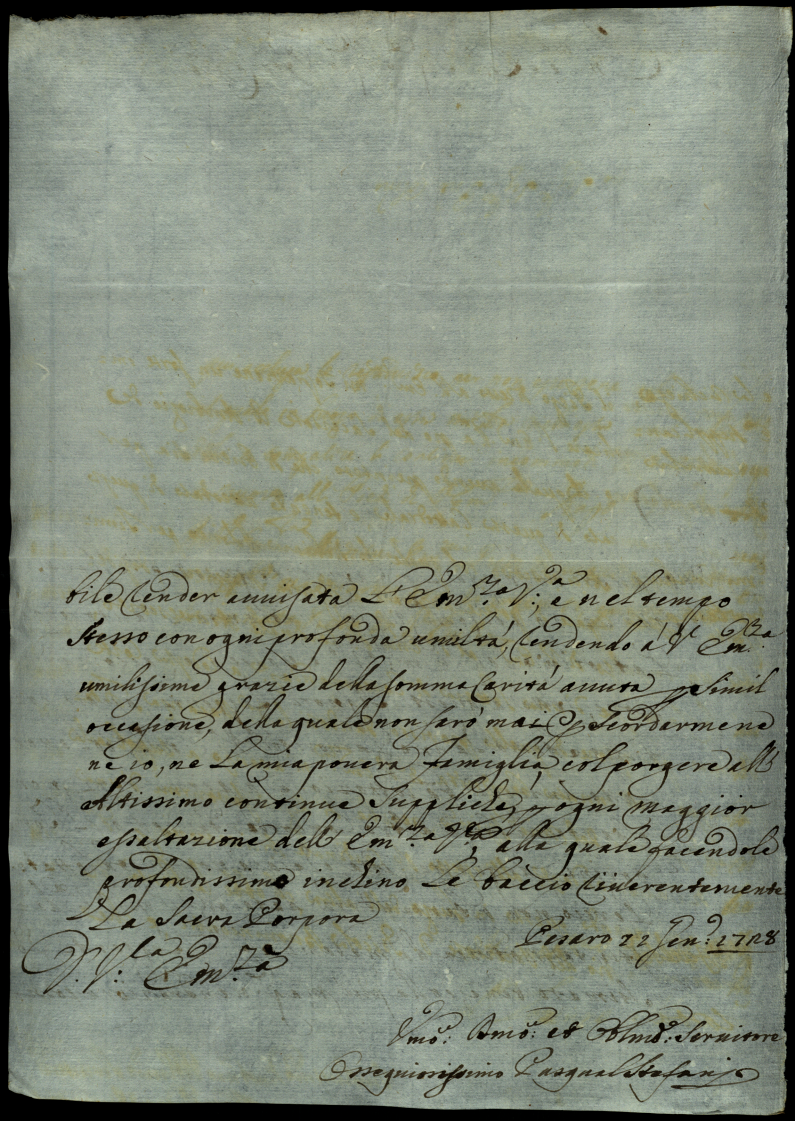 bile render auuisata L'Em.za V.a, e nel tempo
stesso con ogni profonda umiltá, rendendo á V. Em.za
umilissime grazie della somma Caritá auuta p simil
occasione, della quale non saró mai p scordarmene
ne io, ne La mia pouera famiglia, col porgere all'
Altissimo continue suppliche, p ogni maggior
esaltazione dell' Em.za V.a, alla quale facendole
profondissimo inchino Le baccio riuerentemente
La Sacra Porpora
Pesaro 22 Gen.o: 1728
D. V.: la Em.za
Vmo: Dmo: et Obl.mo: Seruitore
Ossequiosissimo Pasqual Stefani